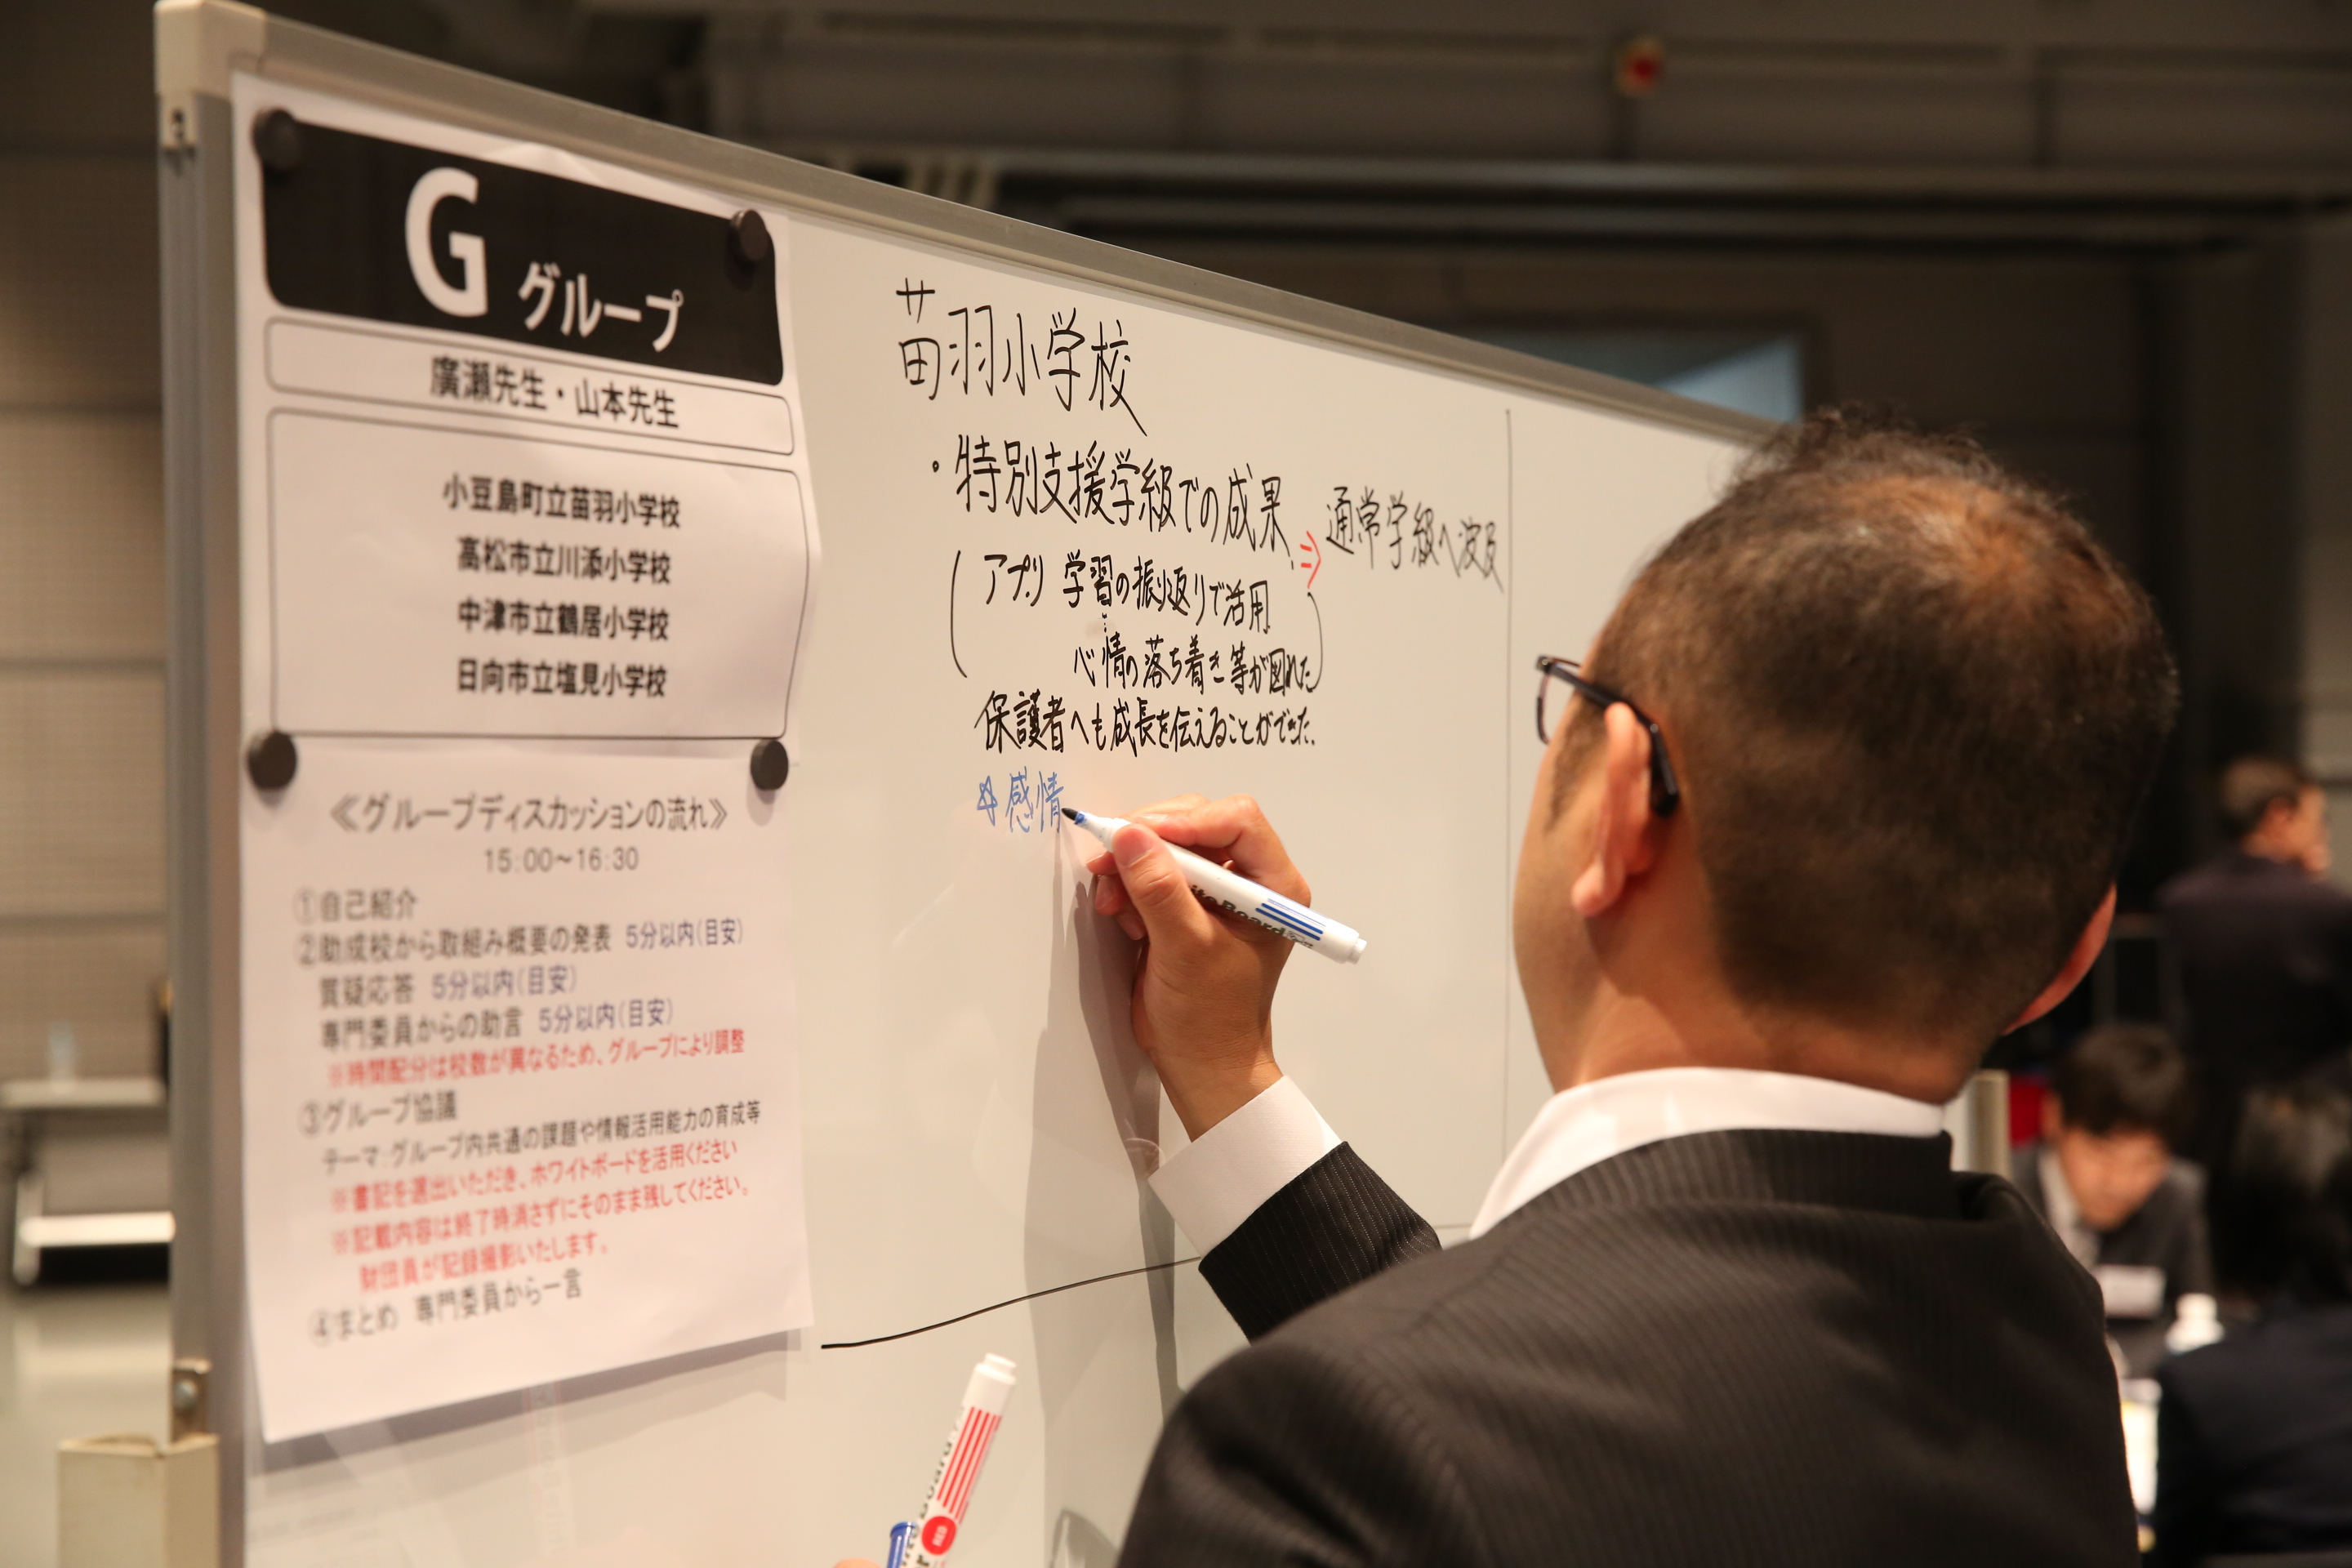 G グループ
廣瀬先生・山本先生
小豆島町立苗羽小学校
高松市立川添小学校
中津市立鶴居小学校
日向市立塩見小学校
≪グループディスカッションの流れ≫
15:00～16:30
①自己紹介
②助成校から取組み概要の発表 5分以内(目安)
質疑応答 5分以内(目安)
専門委員からの助言 5分以内(目安)
※時間配分は校数が異なるため、グループにより調整
③グループ協議
テーマ:グループ内共通の課題や情報活用能力の育成等
※書記を選出いただき、ホワイトボードを活用ください
※記載内容は終了時消さずにそのまま残してください。
財団員が記録撮影いたします。
④まとめ 専門委員から一言
苗羽小学校
・特別支援学級での成果
⇒通常学級へ波及
(アプリ 学習の振り返りで活用
心情の落ち着き等が図れた)
保護者へも成長を伝えることができた.
☆感情